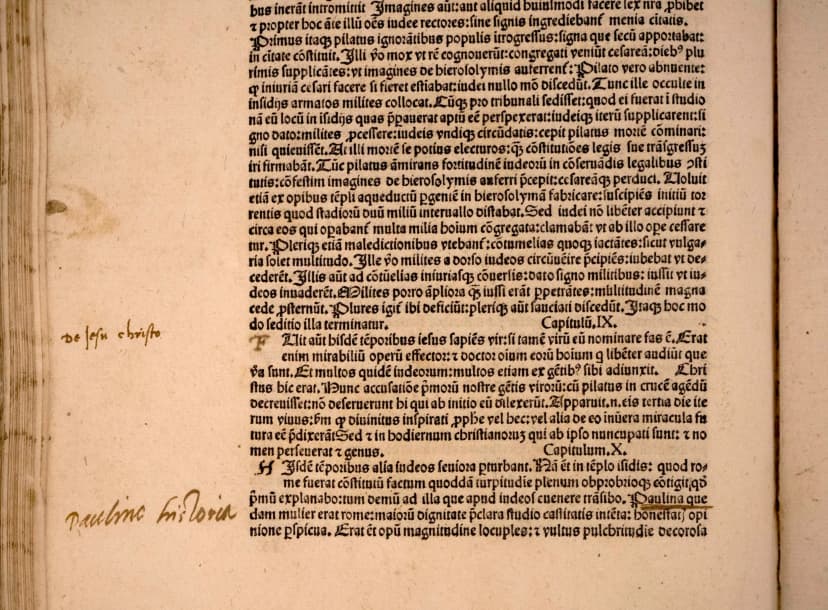 bus inerāt intromittit Imagines aūt: aut aliquid huiusmodi facere lex nr̄a ꝓhibet
⁊ propter hoc āte illū oēs iudee rectores: sine signis ingrediebant᷑ menia citatis.
Primus itaqꝫ pilatus ignorātibus populis ītrogressus: signa que secū apportabat:
in citate cōstituit. Illi ꝟo mox vt rē cognouerūt: congregati veniūt cesareā: dieb⁹ plu
rimis supplicātes: vt imagines de hierosolymis auferrent᷑: Pilato vero abnuente:
ꝙ iniuriā cesari facere si fieret estiabat: iudei nullo mō discedūt. Tunc ille occulte in
insidijs armatos milites collocat. Cūqꝫ pro tribunali sedisset: quod ei fuerat ī studio
nā eū locū in īsidijs quas p̄parauerat aptū eē perspexerat: iudeiqꝫ iterū supplicarent: si
gno dato: milites ꝓcessere: iudeis vndiqꝫ circūdatis: cepit pilatus mortē cōminari:
nisi quieuisset. At illi mortē se potius electuros: qꝫ cōstitutiōes legis sue trāsgressuꝫ
iri firmabāt. Tūc pilatus āmirans fortitudinē iudeorū in cōseruādis legalibus ꝯsti
tutis: cōfestim imagines de hierosolymis auferri p̄cepit: cesareāqꝫ perduci. Uoluit
etiā ex opibus tēpli aqueductū ꝑgeniē in hierosolymā fabricare: suscipiēs initiū tor
rentis quod stadiorū duū miliū interuallo distabat. Sed iudei nō libēter accipiunt ⁊
circa eos qui oꝑabant᷑ multa milia hoium cōgregata: clamabāt vt ab illo oꝑe cessare
tur. Pleriqꝫ etiā maledictionibus vtebant᷑: cōtumelias quoqꝫ iactātes: sicut vulga-
ria solet multitudo. Ille ꝟo milites a dorso iudeos circūuēire p̄cipiēs: iubebat vt de-
cederēt. Illis aūt ad cōtūelias iniuriasqꝫ cōuersis: dato signo militibus: iussit vt iu-
deos inuaderēt. Milites porro āpliora qꝫ iussi erāt ꝑpetrātes: multitudinē magna
cede ꝓsternūt. Plures igit᷑ ibi deficiūt: pleriqꝫ aūt sauciati discedūt. Itaqꝫ hoc mo
do seditio illa terminatur. Capitulū. IX.
De Jesu christo
Fuit aūt hisdē tēporibus iesus sapiēs vir: si tamē virū eū nominare fas ē. Erat
enim mirabiliū operū effector: ⁊ doctor oium eorū hoium q libēter audiūt que
ꝟa sunt. Et multos quidē iudeorum: multos etiam ex gētib⁹ sibi adiunxit. Chri
stus hic erat. Hunc accusatiōe p̄morū nostre gētis virorū: cū pilatus in crucē agēdū
decreuisset: nō deseruerunt hi qui ab initio eū dilexerūt. Apparuit. n. eis tertia die ite
rum viuus: ẜm ꝙ diuinitus inspirati ꝓphe vel hec: vel alia de eo īnūera miracula fu
tura eē p̄dixerāt Sed ⁊ in hodiernum christianoruꝫ qui ab ipso nuncupati sunt: ⁊ no
men perseuerat ⁊ genus. Capitulum. X.
Hisdē tēporibus alia iudeos seuiora ꝑturbant. Nā ēt in tēplo isidis: quod ro-
me fuerat cōstitutū factum quoddā turpitudie plenum obprobrioqꝫ cōtigit, qd̓
p̄mū explanabo: tum demū ad illa que apud iudeos euenere trāsibo. Paulina que
Paulinae historia
dam mulier erat rome: maiorū dignitate p̄clara studio castitatis intēta: honestatis opi
nione ꝑspicua. Erat ēt opū magnitudine locuples: ⁊ vultus pulchritudie decorosa